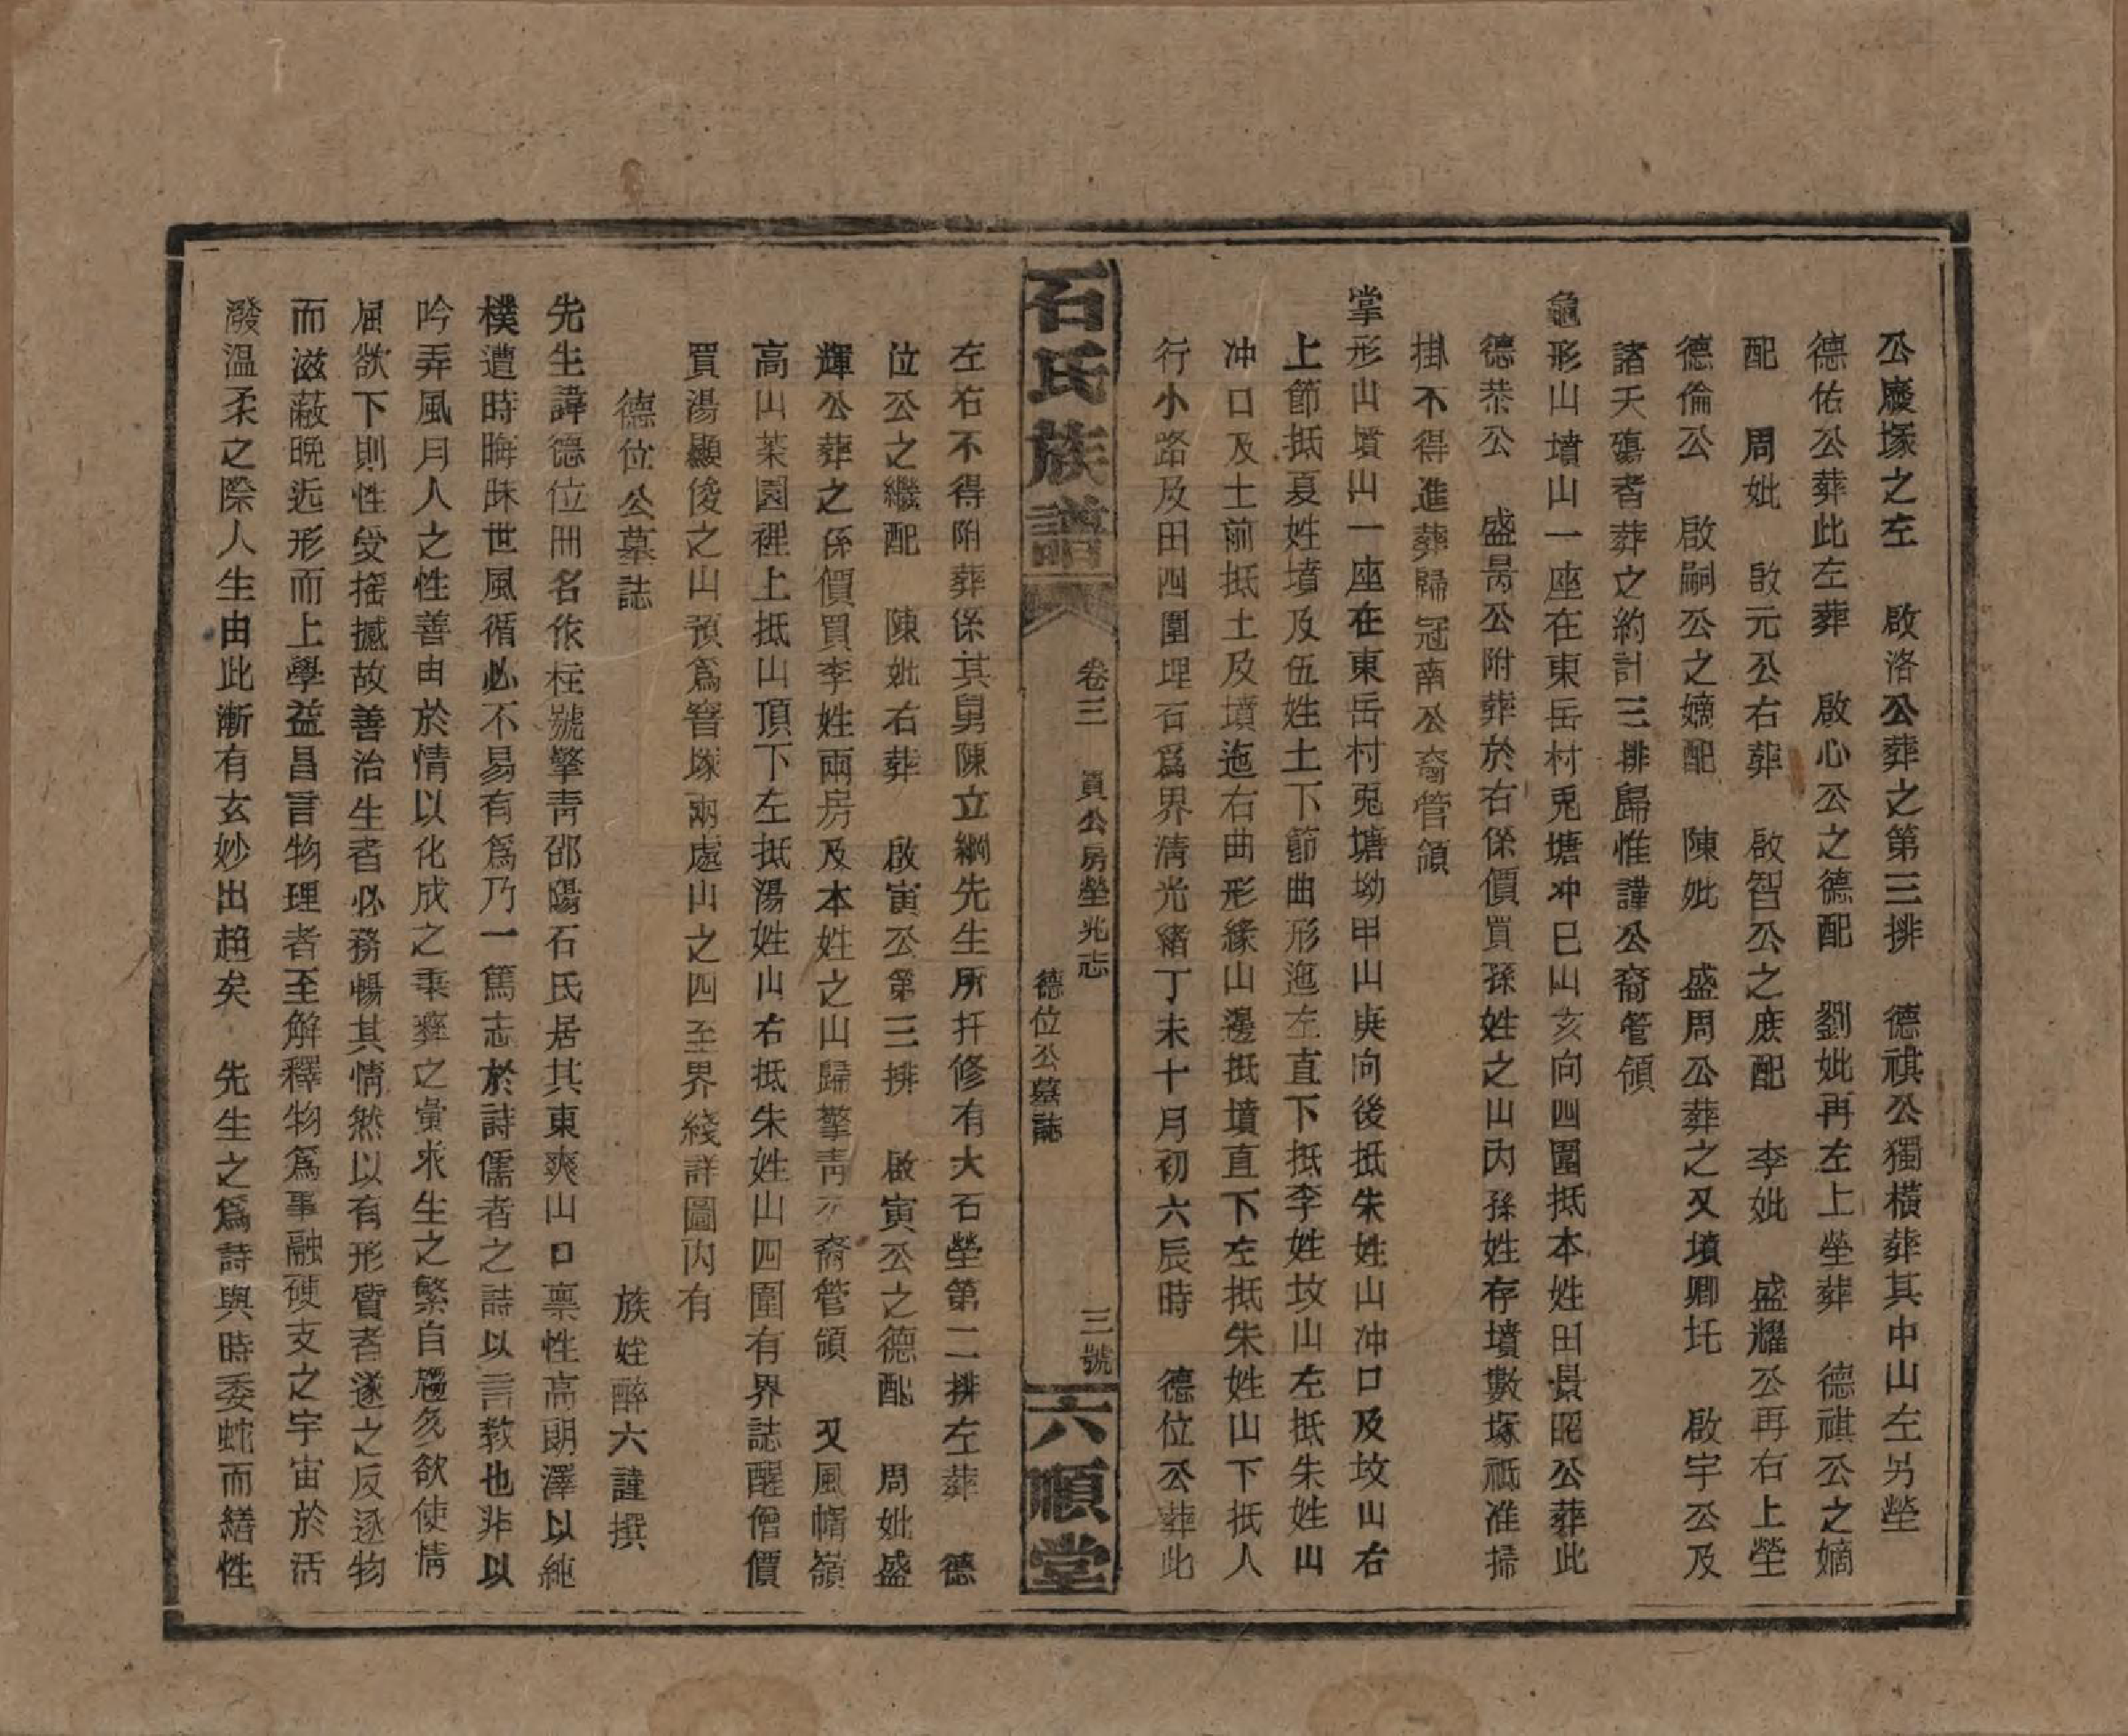 公慶塚之左　啟洛公葬之第三排　德祺公獨橫葬其中山左另塋
德佑公葬此左葬　啟心公之德配　劉妣再左上塋葬　德祺公之嫡
配　周妣　啟元公右葬　啟智公之庶配　李妣　盛耀公再右上塋
德倫公　啟嗣公之嫡配　陳妣　盛周公葬之又墳卿圫　啟宇公及
諸夭殤者葬之約計三排歸惟謹公裔管領
龜形山墳山一座在東岳村兎塘冲巳山亥向四圍抵本姓田景昭公葬此
德恭公　盛昺公附葬於右係價買孫姓之山內孫姓存墳數塚祇准掃
掛不得進葬歸冠南公裔管領
掌形山墳山一座在東岳村兎塘坳甲山庚向後抵朱姓山冲口及坟山右
上節抵夏姓墳及伍姓土下節曲形迤左直下抵李姓坟山左抵朱姓山
冲口及土前抵土及墳迤右曲形緣山邊抵墳直下左抵朱姓山下抵人
行小路及田四圍埋石爲界淸光緖丁未十月初六辰時　德位公葬此
石氏族譜
卷三　員公房塋兆志
德位公墓誌
三號
六順堂
左右不得附葬係其舅陳立綱先生所扦修有大石塋第二排左葬　德
位公之繼配　陳妣右葬　啟寅公第三排　啟寅公之德配　周妣盛
輝公葬之係價買李姓兩房及本姓之山歸擎靑公裔管領　又風帽嶺
高山茶園裡上抵山頂下左抵湯姓山右抵朱姓山四圍有界誌醒僧價
買湯顯俊之山預爲窨塚兩處山之四至界綫詳圖內有
德位公墓誌
族姪醉六謹撰
先生諱德位冊名依柱號擎靑邵陽石氏居其東爽山口稟性高朗澤以純
樸遭時晦昧世風循必不易有爲乃一篤志於詩儒者之詩以言教也非以
吟弄風月人之性善由於情以化成之秉彝之彙求生之繁自趨多欲使情
屈欲下則性受搖撼故善治生者必務暢其情然以有形質者遂之反逐物
而滋蔽晩近形而上學益昌言物理者至解釋物爲事融硬支之宇宙於活
潑温柔之際人生由此漸有玄妙出趋矣　先生之爲詩與時委蛇而繕性